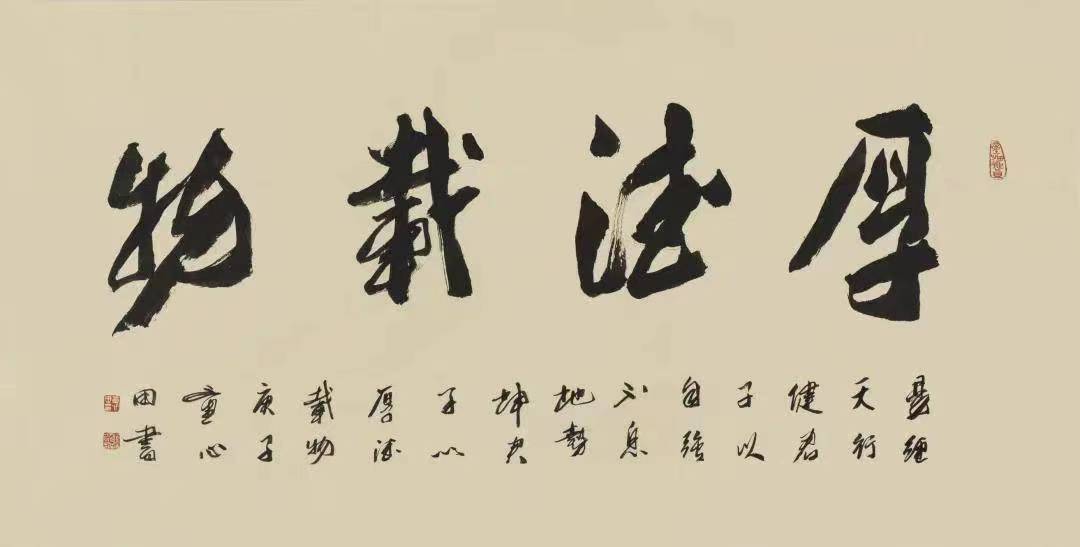 厚德載物
易經
天行
健君
子以
自強
不息
地勢
坤君
子以
厚德
載物
庚子
童心
田書